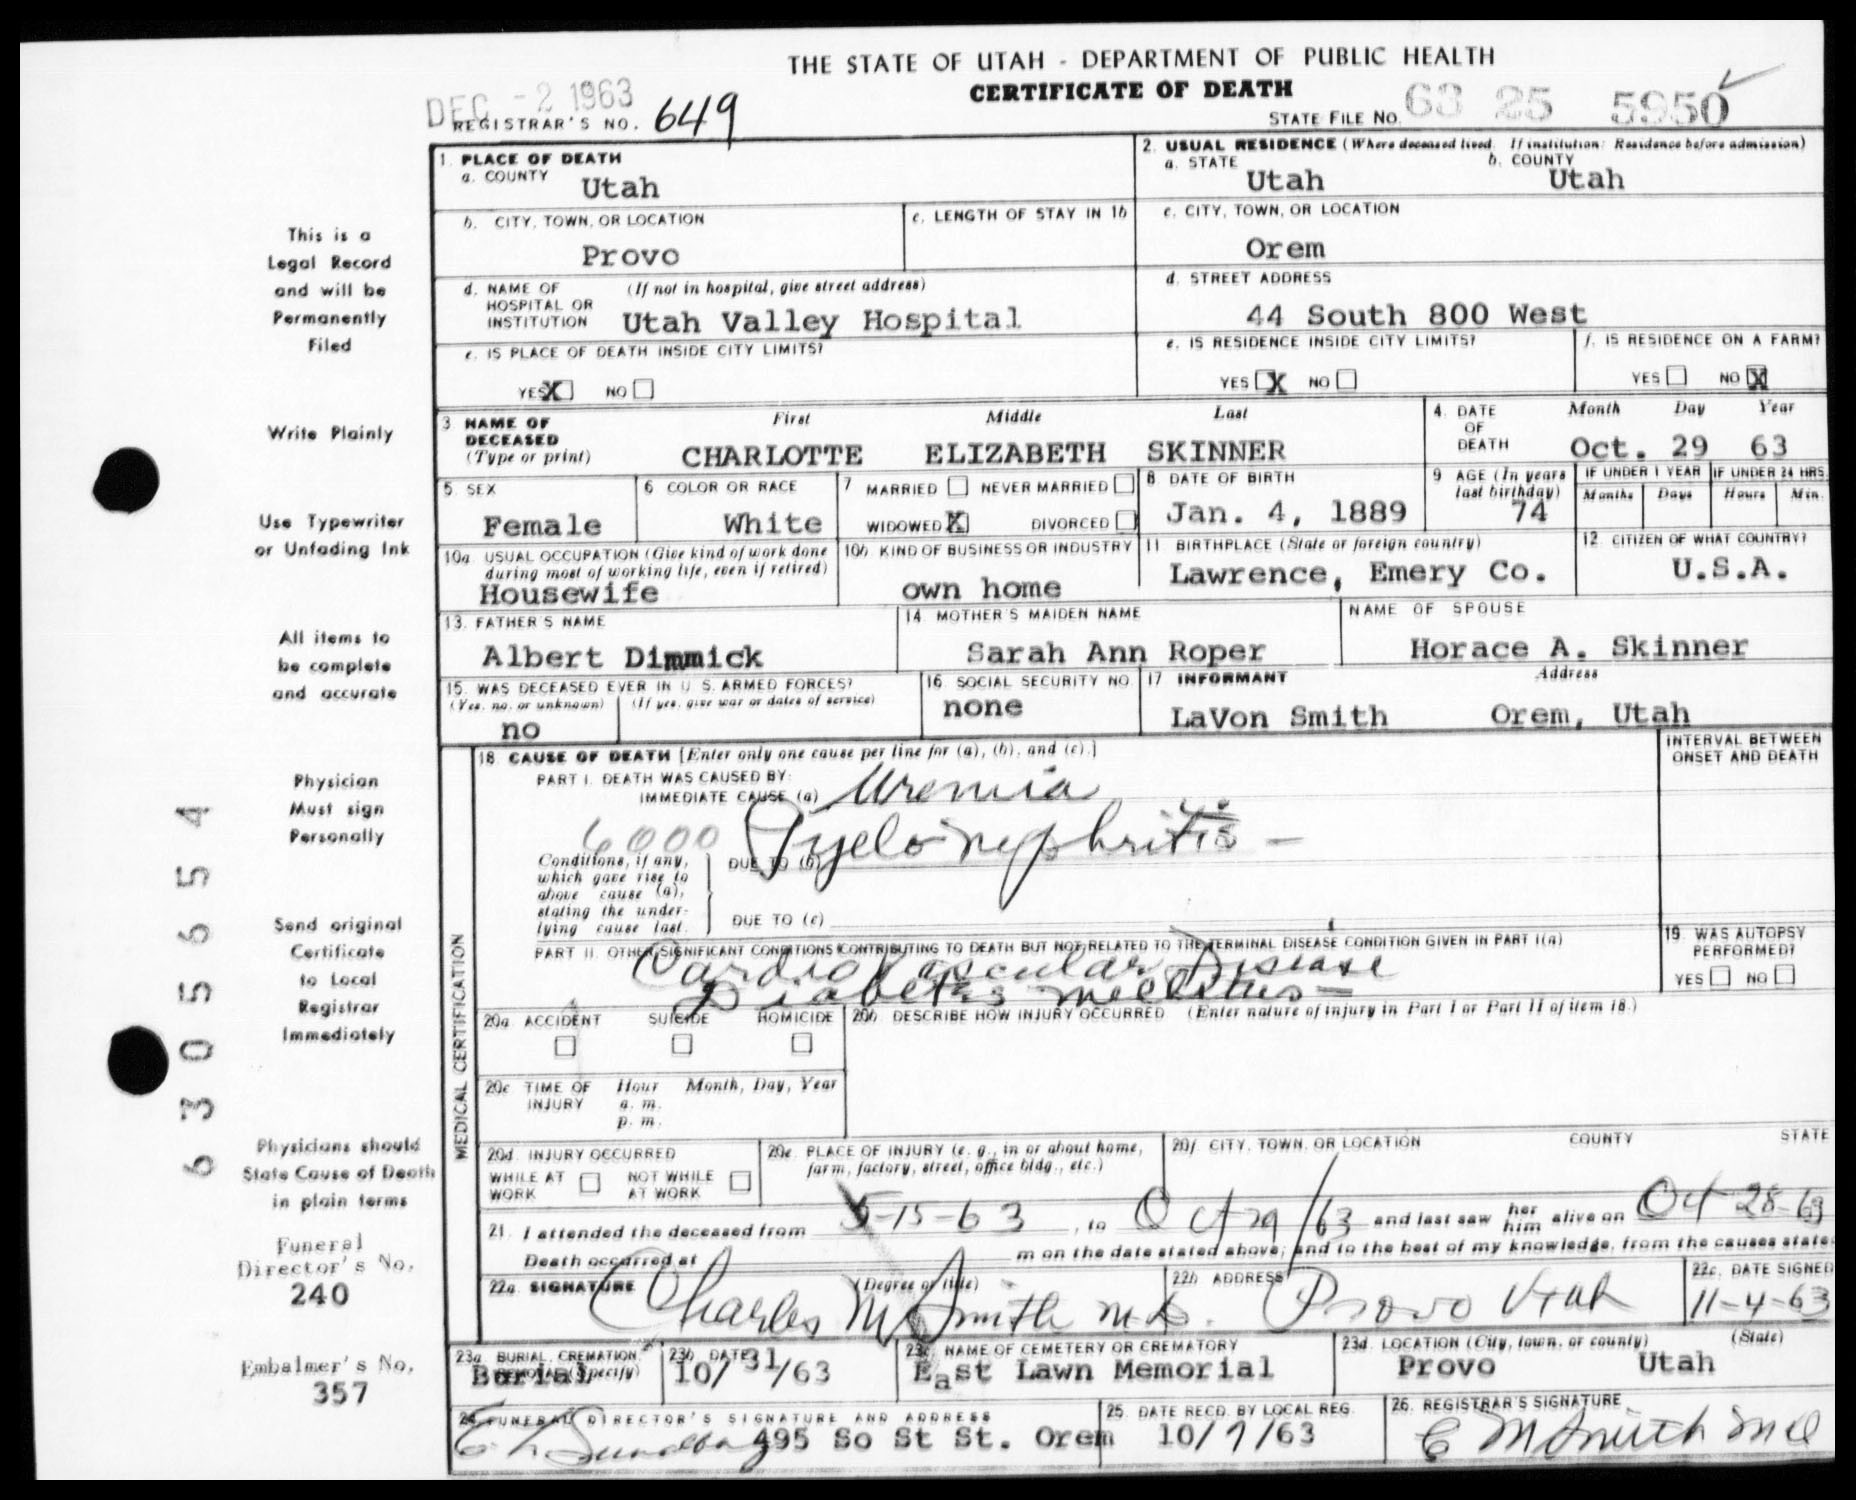 THE STATE OF UTAH - DEPARTMENT OF PUBLIC HEALTH
CERTIFICATE OF DEATH
DEC -2 1963
REGISTRAR'S NO. 649
STATE FILE NO. 63 25 5950
This is a
Legal Record
and will be
Permanently
Filed
Write Plainly
Use Typewriter
or Unfading Ink
All items to
be complete
and accurate
Physician
Must sign
Personally
Send original
Certificate
to Local
Registrar
Immediately
Physicians should
State Cause of Death
in plain terms
Funeral
Director's No.
240
Embalmer's No.
357
6305565 4
1. PLACE OF DEATH
a. COUNTY Utah
2. USUAL RESIDENCE (Where deceased lived. If institution: Residence before admission)
a. STATE Utah
b. COUNTY Utah
b. CITY, TOWN, OR LOCATION
Provo
c. LENGTH OF STAY IN 1b
c. CITY, TOWN, OR LOCATION
Orem
d. NAME OF HOSPITAL OR INSTITUTION (If not in hospital, give street address)
Utah Valley Hospital
d. STREET ADDRESS
44 South 800 West
e. IS PLACE OF DEATH INSIDE CITY LIMITS?
YES X NO
e. IS RESIDENCE INSIDE CITY LIMITS?
YES X NO
f. IS RESIDENCE ON A FARM?
YES NO X
3 NAME OF DECEASED (Type or print)
First Middle Last
CHARLOTTE ELIZABETH SKINNER
4. DATE OF DEATH
Month Day Year
Oct. 29 63
5. SEX
Female
6 COLOR OR RACE
White
7 MARRIED NEVER MARRIED
WIDOWED X DIVORCED
8 DATE OF BIRTH
Jan. 4, 1889
9 AGE (In years last birthday)
74
IF UNDER 1 YEAR IF UNDER 24 HRS.
Months Days Hours Min.
10a USUAL OCCUPATION (Give kind of work done during most of working life, even if retired)
Housewife
10b. KIND OF BUSINESS OR INDUSTRY
own home
11 BIRTHPLACE (State or foreign country)
Lawrence, Emery Co.
12 CITIZEN OF WHAT COUNTRY?
U.S.A.
13. FATHER'S NAME
Albert Dimmick
14 MOTHER'S MAIDEN NAME
Sarah Ann Roper
NAME OF SPOUSE
Horace A. Skinner
15. WAS DECEASED EVER IN U S. ARMED FORCES?
(Yes, no, or unknown) (If yes, give war or dates of service)
no
16. SOCIAL SECURITY NO.
none
17 INFORMANT Address
LaVon Smith Orem, Utah
MEDICAL CERTIFICATION
18. CAUSE OF DEATH [Enter only one cause per line for (a), (b), and (c).]
INTERVAL BETWEEN ONSET AND DEATH
PART I. DEATH WAS CAUSED BY:
IMMEDIATE CAUSE (a) Uremia
6000 Pyelonephritis -
Conditions, if any, which gave rise to above cause (a), stating the underlying cause last.
DUE TO (b)
DUE TO (c)
PART II. OTHER SIGNIFICANT CONDITIONS CONTRIBUTING TO DEATH BUT NOT RELATED TO THE TERMINAL DISEASE CONDITION GIVEN IN PART I(a)
Cardio Vascular Disease
Diabetes mellitus -
19. WAS AUTOPSY PERFORMED?
YES NO
20a ACCIDENT SUICIDE HOMICIDE
20b DESCRIBE HOW INJURY OCCURRED (Enter nature of injury in Part I or Part II of item 18.)
20c TIME OF INJURY Hour Month, Day, Year
a. m.
p. m.
20d. INJURY OCCURRED
WHILE AT WORK NOT WHILE AT WORK
20e. PLACE OF INJURY (e. g., in or about home, farm, factory, street, office bldg., etc.)
20f CITY, TOWN, OR LOCATION COUNTY STATE
21. I attended the deceased from 5-15-63, to Oct 29/63 and last saw her him alive on Oct 28-63
Death occurred at m on the date stated above; and to the best of my knowledge, from the causes state
22a. SIGNATURE (Degree or title)
Charles M Smith M.D.
22b ADDRESS
Provo Utah
22c. DATE SIGNED
11-4-63
23a. BURIAL, CREMATION, REMOVAL (Specify)
Burial
23b DATE
10/31/63
23c NAME OF CEMETERY OR CREMATORY
East Lawn Memorial
23d. LOCATION (City, town, or county) (State)
Provo Utah
24. FUNERAL DIRECTOR'S SIGNATURE AND ADDRESS
495 So St St. Orem
25. DATE RECD. BY LOCAL REG.
10/7/63
26. REGISTRAR'S SIGNATURE
C M Smith MD